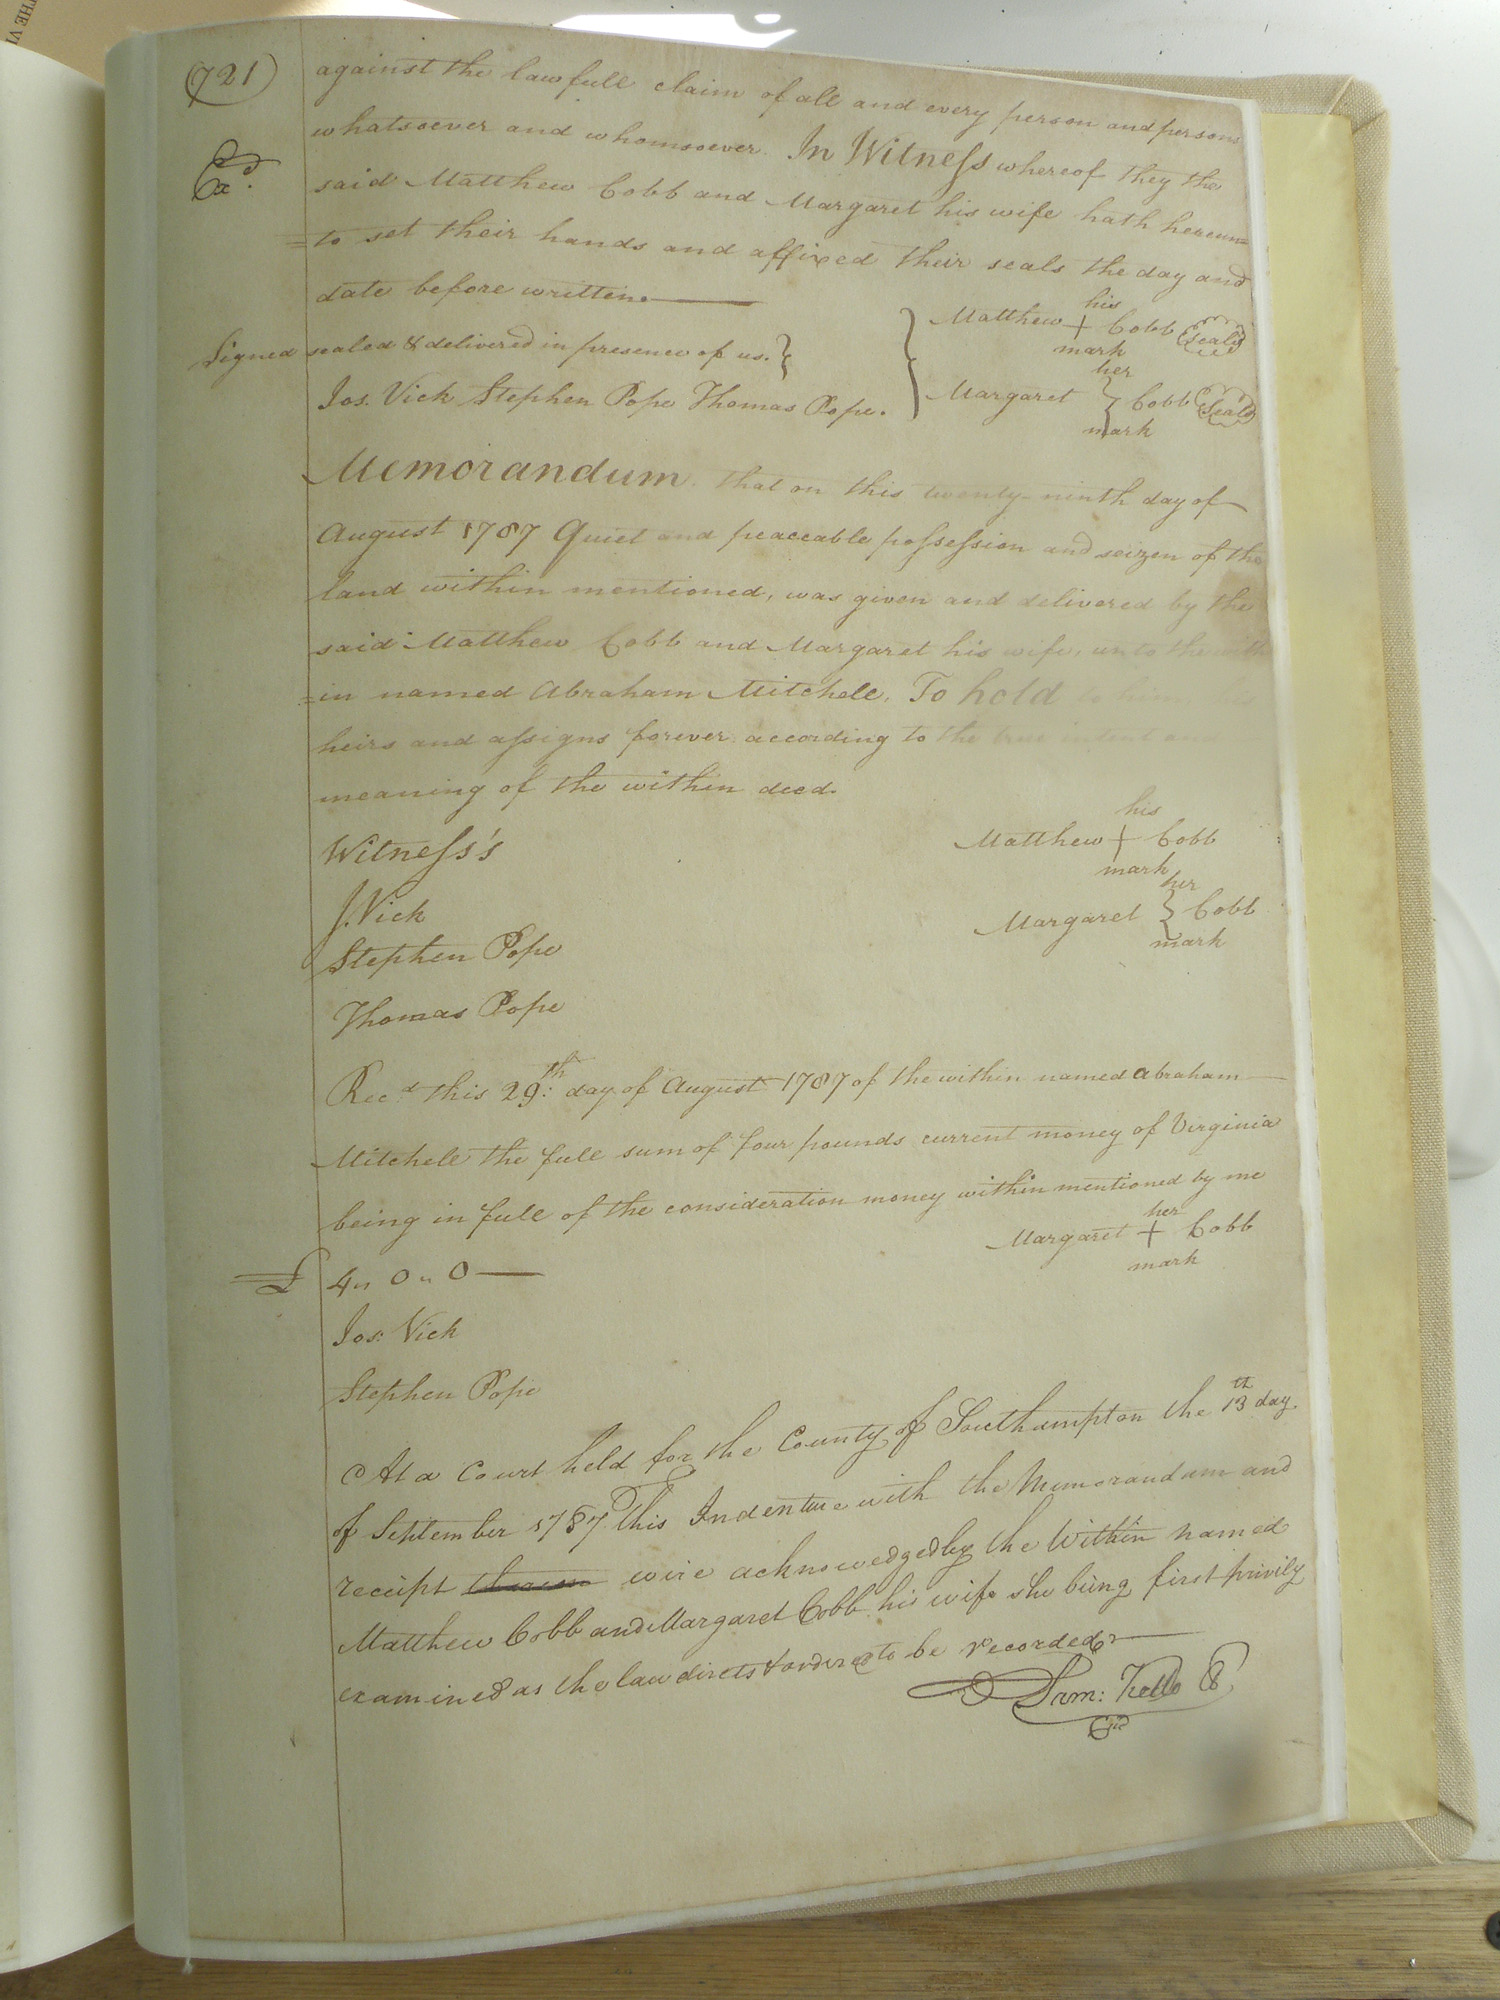 (721)
against the lawfull claim of all and every person and persons
whatsoever and whomsoever. In Witness whereof they the
Exd.
said Matthew Cobb and Margaret his wife hath hereun=
=to set their hands and affixed their seals the day and
date before written.
Signed sealed & delivered in presence of us.
Jos. Vick Stephen Pope Thomas Pope.
his
Matthew + Cobb (Seal)
mark
her
Margaret } Cobb (Seal)
mark
Memorandum. that on this twenty-ninth day of
August 1787 Quiet and peaceable possession and seizen of the
land within mentioned, was given and delivered by the
said Matthew Cobb and Margaret his wife, unto the with
=in named Abraham Mitchell. To hold to him
heirs and assigns forever according to the true intent and
meaning of the within deed.
Witness's
J. Vick
Stephen Pope
Thomas Pope
his
Matthew + Cobb
mark
her
Margaret } Cobb
mark
Recd this 29th: day of August 1787 of the within named Abraham
Mitchell the full sum of four pounds current money of Virginia
being in full of the consideration money within mentioned by me
her
Margaret + Cobb
mark
£ 4 " 0 " 0
Jos: Vick
Stephen Pope
At a Court held for the County of Southampton the 13th day
of September 1787 This Indenture with the Memorandum and
receipt were acknowedged by the Within named
Matthew Cobb and Margaret Cobb his wife she being first privily
examined as the law directs & ordered to be recorded
Sam: